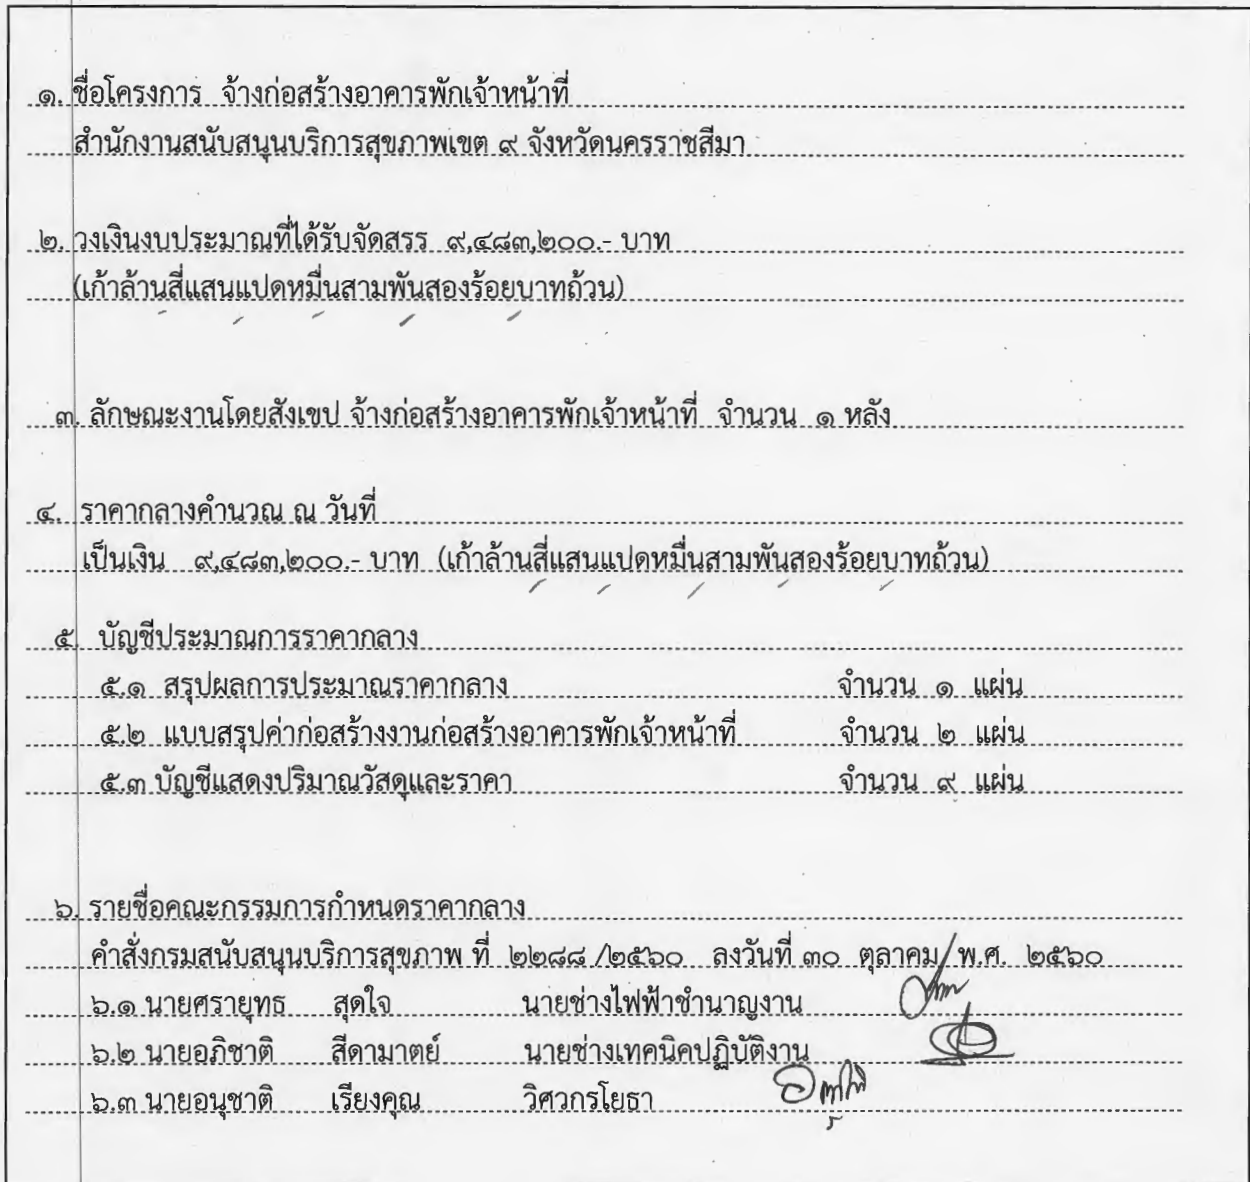 ๑. ชื่อโครงการ จ้างก่อสร้างอาคารพักเจ้าหน้าที่
สำนักงานสนับสนุนบริการสุขภาพเขต ๙ จังหวัดนครราชสีมา
๒. วงเงินงบประมาณที่ได้รับจัดสรร ๙,๔๘๓,๒๐๐.- บาท
(เก้าล้านสี่แสนแปดหมื่นสามพันสองร้อยบาทถ้วน)
๓. ลักษณะงานโดยสังเขป จ้างก่อสร้างอาคารพักเจ้าหน้าที่ จำนวน ๑ หลัง
๔. ราคากลางคำนวณ ณ วันที่
เป็นเงิน ๙,๔๘๓,๒๐๐.- บาท (เก้าล้านสี่แสนแปดหมื่นสามพันสองร้อยบาทถ้วน)
๕. บัญชีประมาณการราคากลาง
๕.๑ สรุปผลการประมาณราคากลาง จำนวน ๑ แผ่น
๕.๒ แบบสรุปค่าก่อสร้างงานก่อสร้างอาคารพักเจ้าหน้าที่ จำนวน ๒ แผ่น
๕.๓ บัญชีแสดงปริมาณวัสดุและราคา จำนวน ๙ แผ่น
๖. รายชื่อคณะกรรมการกำหนดราคากลาง
คำสั่งกรมสนับสนุนบริการสุขภาพ ที่ ๒๒๘๘ /๒๕๖๐ ลงวันที่ ๓๐ ตุลาคม พ.ศ. ๒๕๖๐
๖.๑ นายศรายุทธ สุดใจ นายช่างไฟฟ้าชำนาญงาน
๖.๒ นายอภิชาติ สีดามาตย์ นายช่างเทคนิคปฏิบัติงาน
๖.๓ นายอนุชาติ เรียงคุณ วิศวกรโยธา